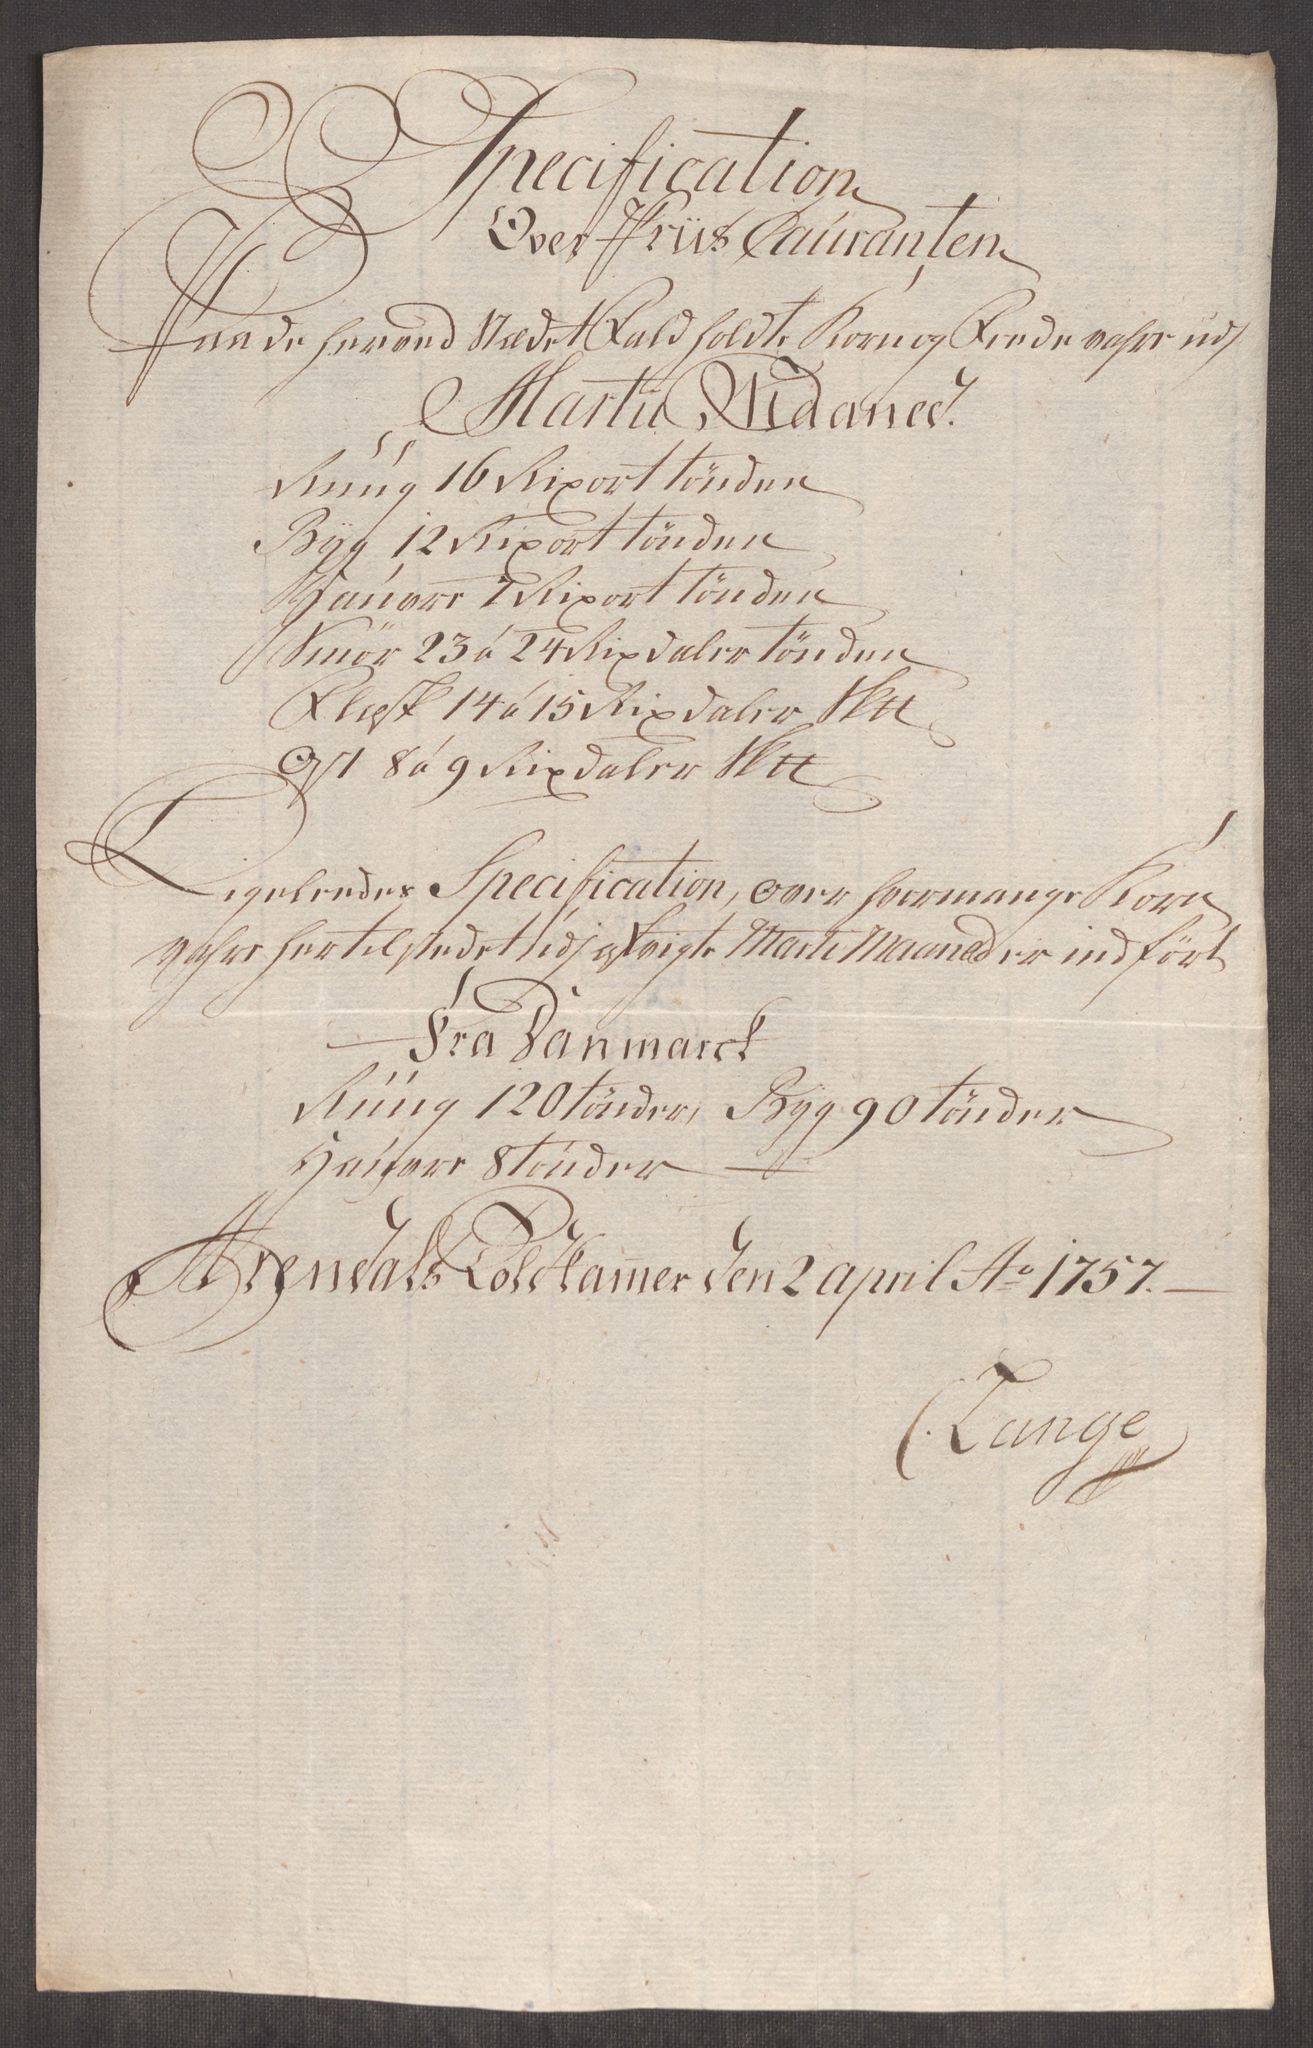 Specification
Over Priis Cauranten
Paa de herved Stædet Fald holdte Korn og Fæde vahre udj
Martii Maaned.
Ruug 16 Rixort tönden
Byg 12 Rixort tönden
Haufre 7 Rixort tönden
Smör 23 a 24 Rixdaler tönden
Flesk 14 a 15 Rixdaler
Ost 8 a 9 Rixdaler
Ligeleedes Specification, over hvormange Korn
vahre her til stedet udj Marti Maaned er indfört
Fra Danmarck
Ruug 120 tönder, Byg 90 tönder
Haufre 8 tönder
Arendals Toldkamer den 2 april Ao 1757.
C. Lange